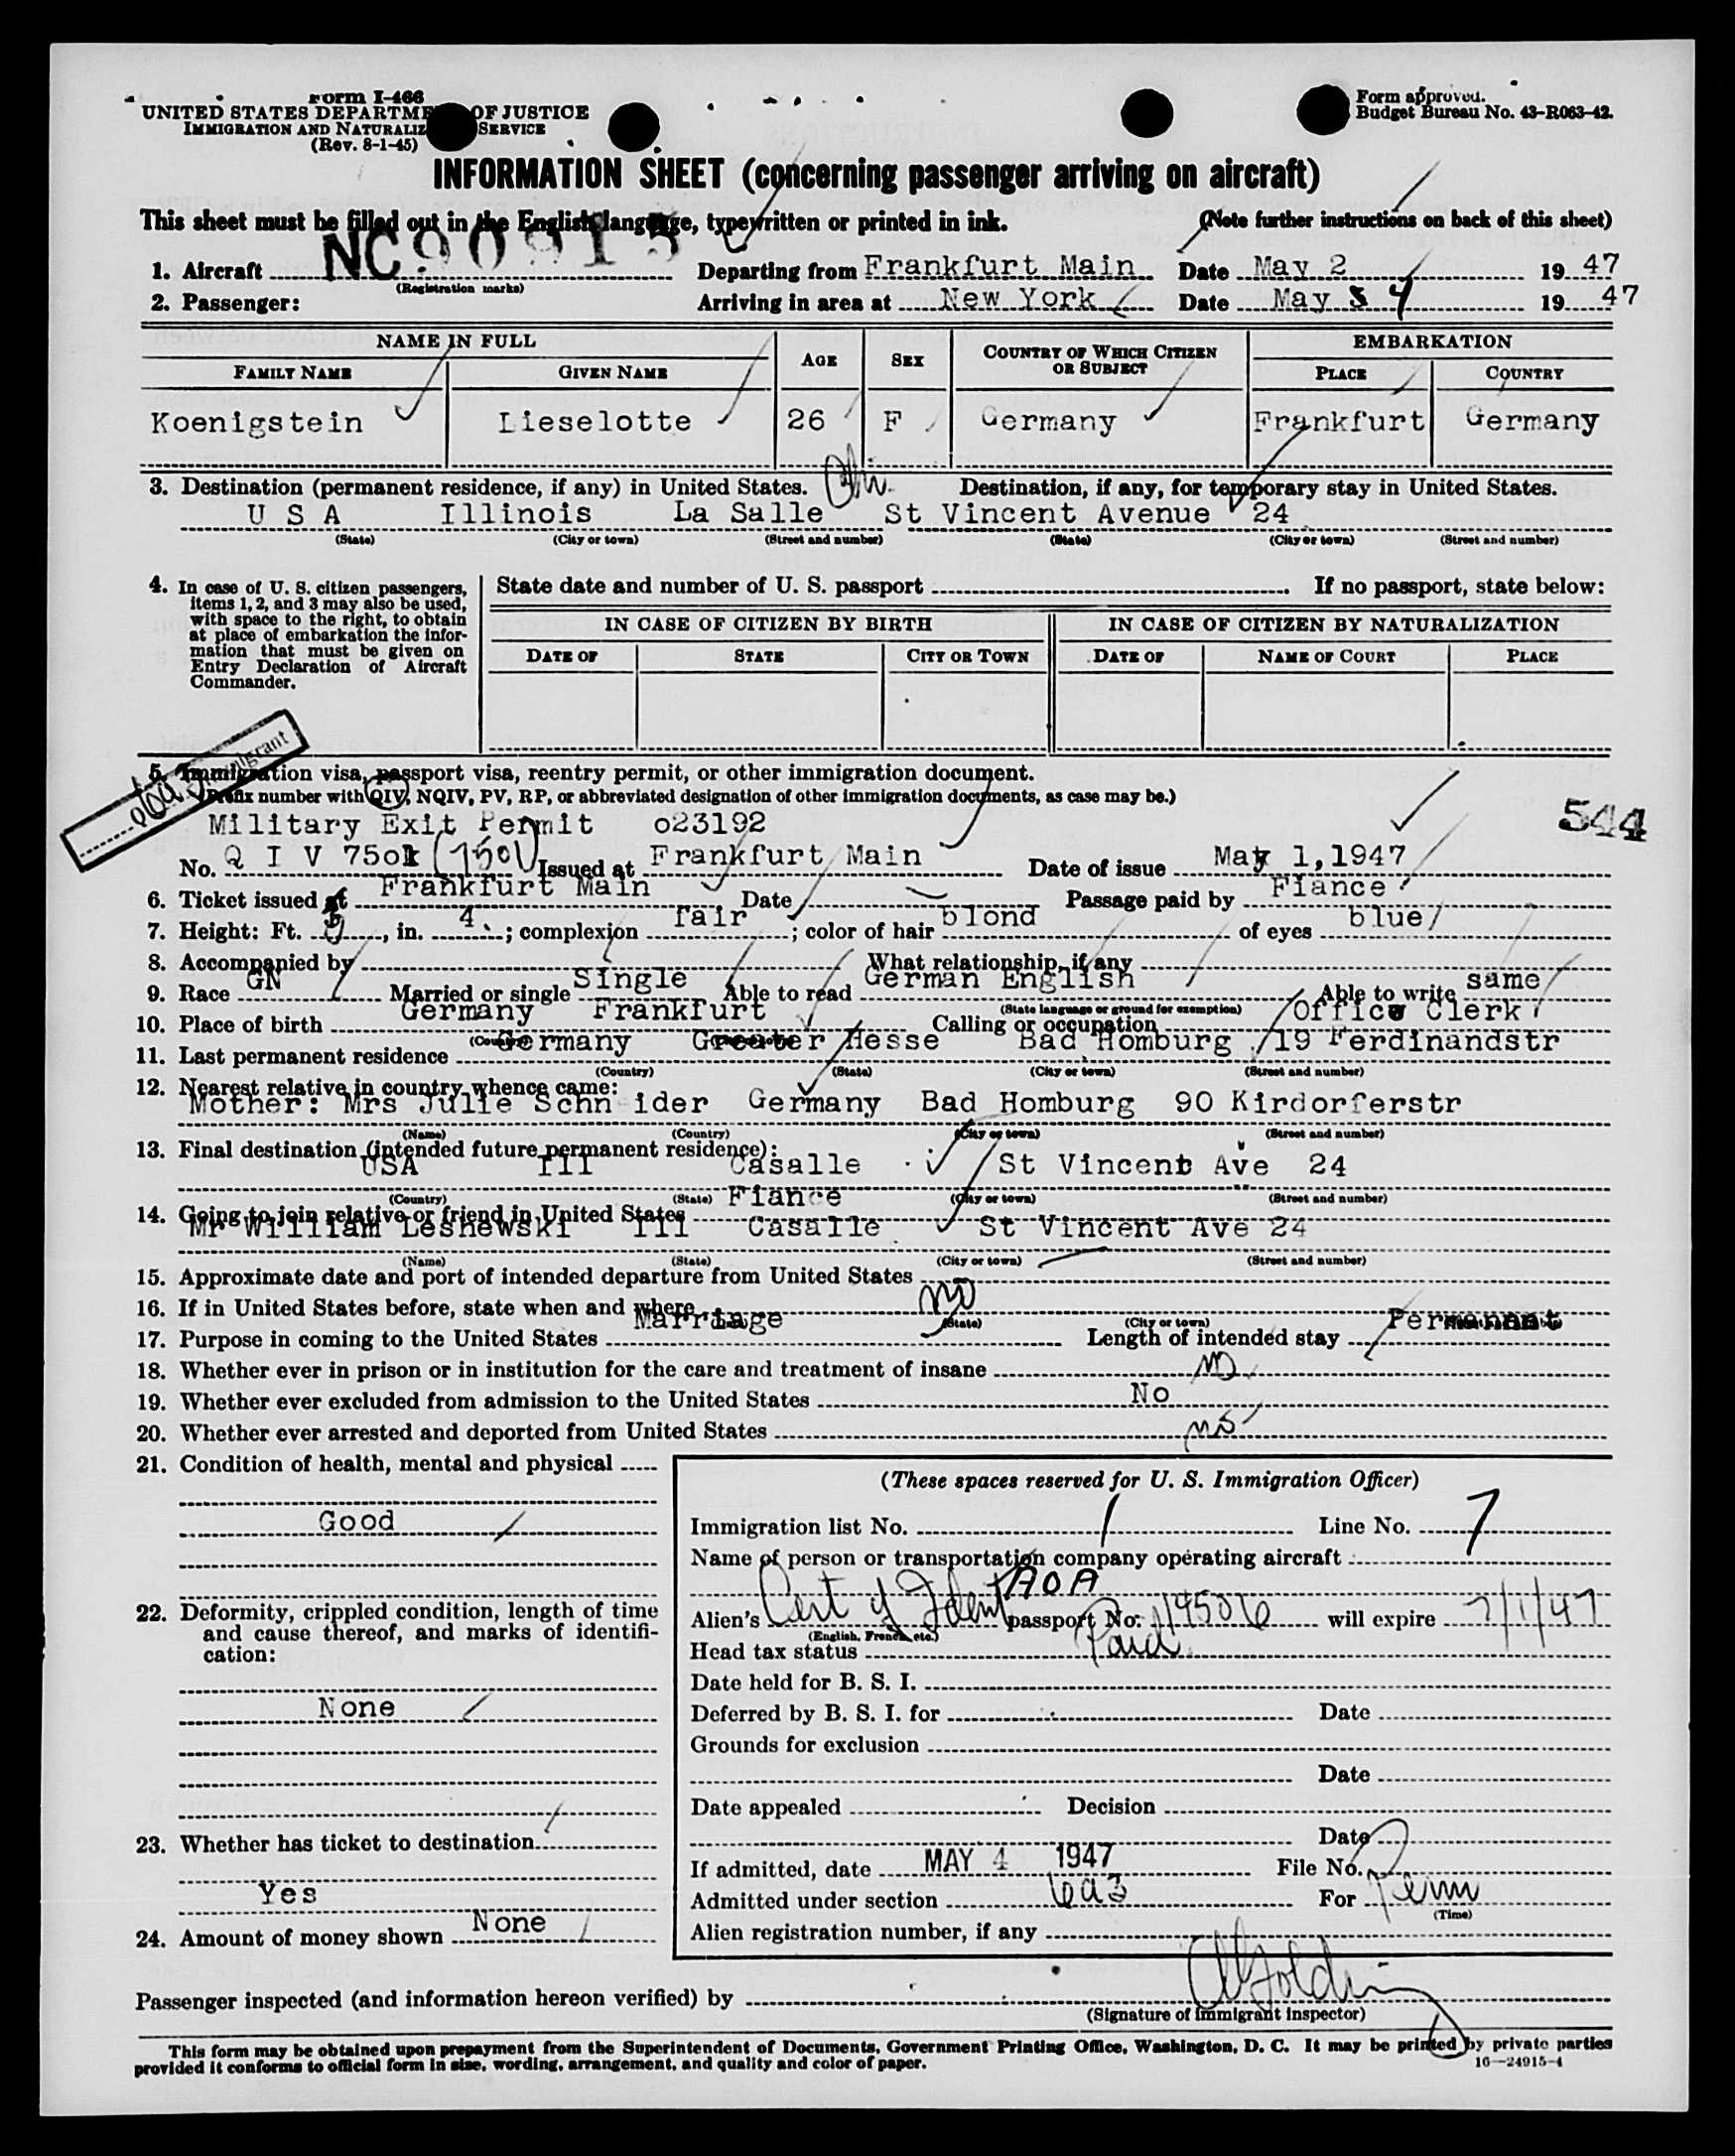 Form I-466
UNITED STATES DEPARTME OF JUSTICE
IMMIGRATION AND NATURALIZ SERVICE
(Rev. 8-1-45)
Form approved.
Budget Bureau No. 43-R063-42.
INFORMATION SHEET (concerning passenger arriving on aircraft)
This sheet must be filled out in the English language, typewritten or printed in ink. (Note further instructions on back of this sheet)
1. Aircraft NC 90915 Departing from Frankfurt Main Date May 2 1947
(Registration marks)
2. Passenger: Arriving in area at New York Date May 4 1947
NAME IN FULL AGE SEX COUNTRY OF WHICH CITIZEN OR SUBJECT EMBARKATION
FAMILY NAME GIVEN NAME PLACE COUNTRY
Koenigstein Lieselotte 26 F Germany Frankfurt Germany
3. Destination (permanent residence, if any) in United States. Destination, if any, for temporary stay in United States.
U S A Illinois La Salle St Vincent Avenue 24
(State) (City or town) (Street and number) (State) (City or town) (Street and number)
4. In case of U. S. citizen passengers, items 1, 2, and 3 may also be used, with space to the right, to obtain at place of embarkation the information that must be given on Entry Declaration of Aircraft Commander.
State date and number of U. S. passport If no passport, state below:
IN CASE OF CITIZEN BY BIRTH IN CASE OF CITIZEN BY NATURALIZATION
DATE OF STATE CITY OR TOWN DATE OF NAME OF COURT PLACE
5. Immigration visa, passport visa, reentry permit, or other immigration document.
(Prefix number with QIV, NQIV, PV, RP, or abbreviated designation of other immigration documents, as case may be.)
544
Military Exit Permit o23192
No. Q I V 750 Issued at Frankfurt Main Date of issue May 1,1947
6. Ticket issued at Frankfurt Main Date Passage paid by Fiance
7. Height: Ft. 5, in. 4; complexion fair; color of hair blond of eyes blue
8. Accompanied by What relationship, if any
9. Race GN Married or single Single Able to read German English Able to write same
(State language or ground for exemption)
10. Place of birth Germany Frankfurt Calling or occupation Office Clerk
11. Last permanent residence Germany Greater Hesse Bad Homburg 19 Ferdinandstr
(Country) (State) (City or town) (Street and number)
12. Nearest relative in country whence came:
Mother: Mrs Julie Schn ider Germany Bad Homburg 90 Kirdorferstr
(Name) (Country) (City or town) (Street and number)
13. Final destination (intended future permanent residence):
USA Ill Casalle St Vincent Ave 24
(Country) (State) (City or town) (Street and number)
14. Going to join relative or friend in United States Fiance
Mr William Leshewski Ill Casalle St Vincent Ave 24
(Name) (State) (City or town) (Street and number)
15. Approximate date and port of intended departure from United States
16. If in United States before, state when and where no
(State) (City or town)
17. Purpose in coming to the United States Marriage Length of intended stay Permanent
18. Whether ever in prison or in institution for the care and treatment of insane no
19. Whether ever excluded from admission to the United States No
20. Whether ever arrested and deported from United States no
21. Condition of health, mental and physical
Good
22. Deformity, crippled condition, length of time and cause thereof, and marks of identification:
None
23. Whether has ticket to destination
Yes
24. Amount of money shown None
(These spaces reserved for U. S. Immigration Officer)
Immigration list No. 1 Line No. 7
Name of person or transportation company operating aircraft
AOA
Alien's Cert of Ident passport No. will expire 7/1/47
(English, French, etc.)
Head tax status Paid
Date held for B. S. I.
Deferred by B. S. I. for Date
Grounds for exclusion
Date
Date appealed Decision
Date
If admitted, date MAY 4 1947 File No.
Admitted under section 6a3 For Perm
(Time)
Alien registration number, if any
Passenger inspected (and information hereon verified) by
(Signature of immigrant inspector)
This form may be obtained upon prepayment from the Superintendent of Documents, Government Printing Office, Washington, D. C. It may be printed by private parties
provided it conforms to official form in size, wording, arrangement, and quality and color of paper.
16—24915-1